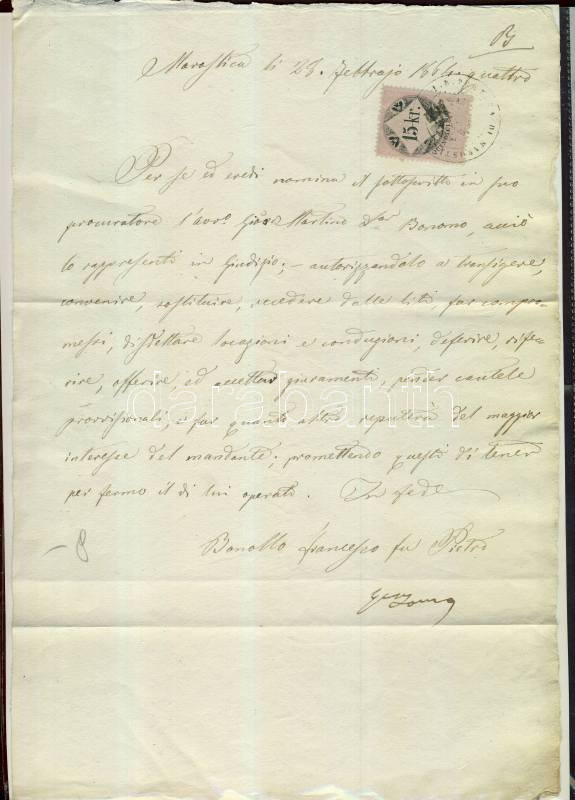 B
Marostica li 28. Febbrajo 186
15 kr.
Per se ed eredi nomina il sottoscritto in suo
procuratore l'avv.o Gio: Martino D.or Bonomo, acciò
lo rappresenti in Giudizio; – autorizzandolo a transigere,
convenire, sostituire, recedere dalle liti, far compro-
messi, disdettare locazioni e conduzioni, deferire, rife-
rire, offerire, ed accettar giuramenti, prender cautele
provvisionali, e far quanto altro reputerà del maggior
interesse del mandante; promettendo questi di tener
per fermo il di lui operato. In fede
Bonollo Francesco fu Pietro
darabanth
8